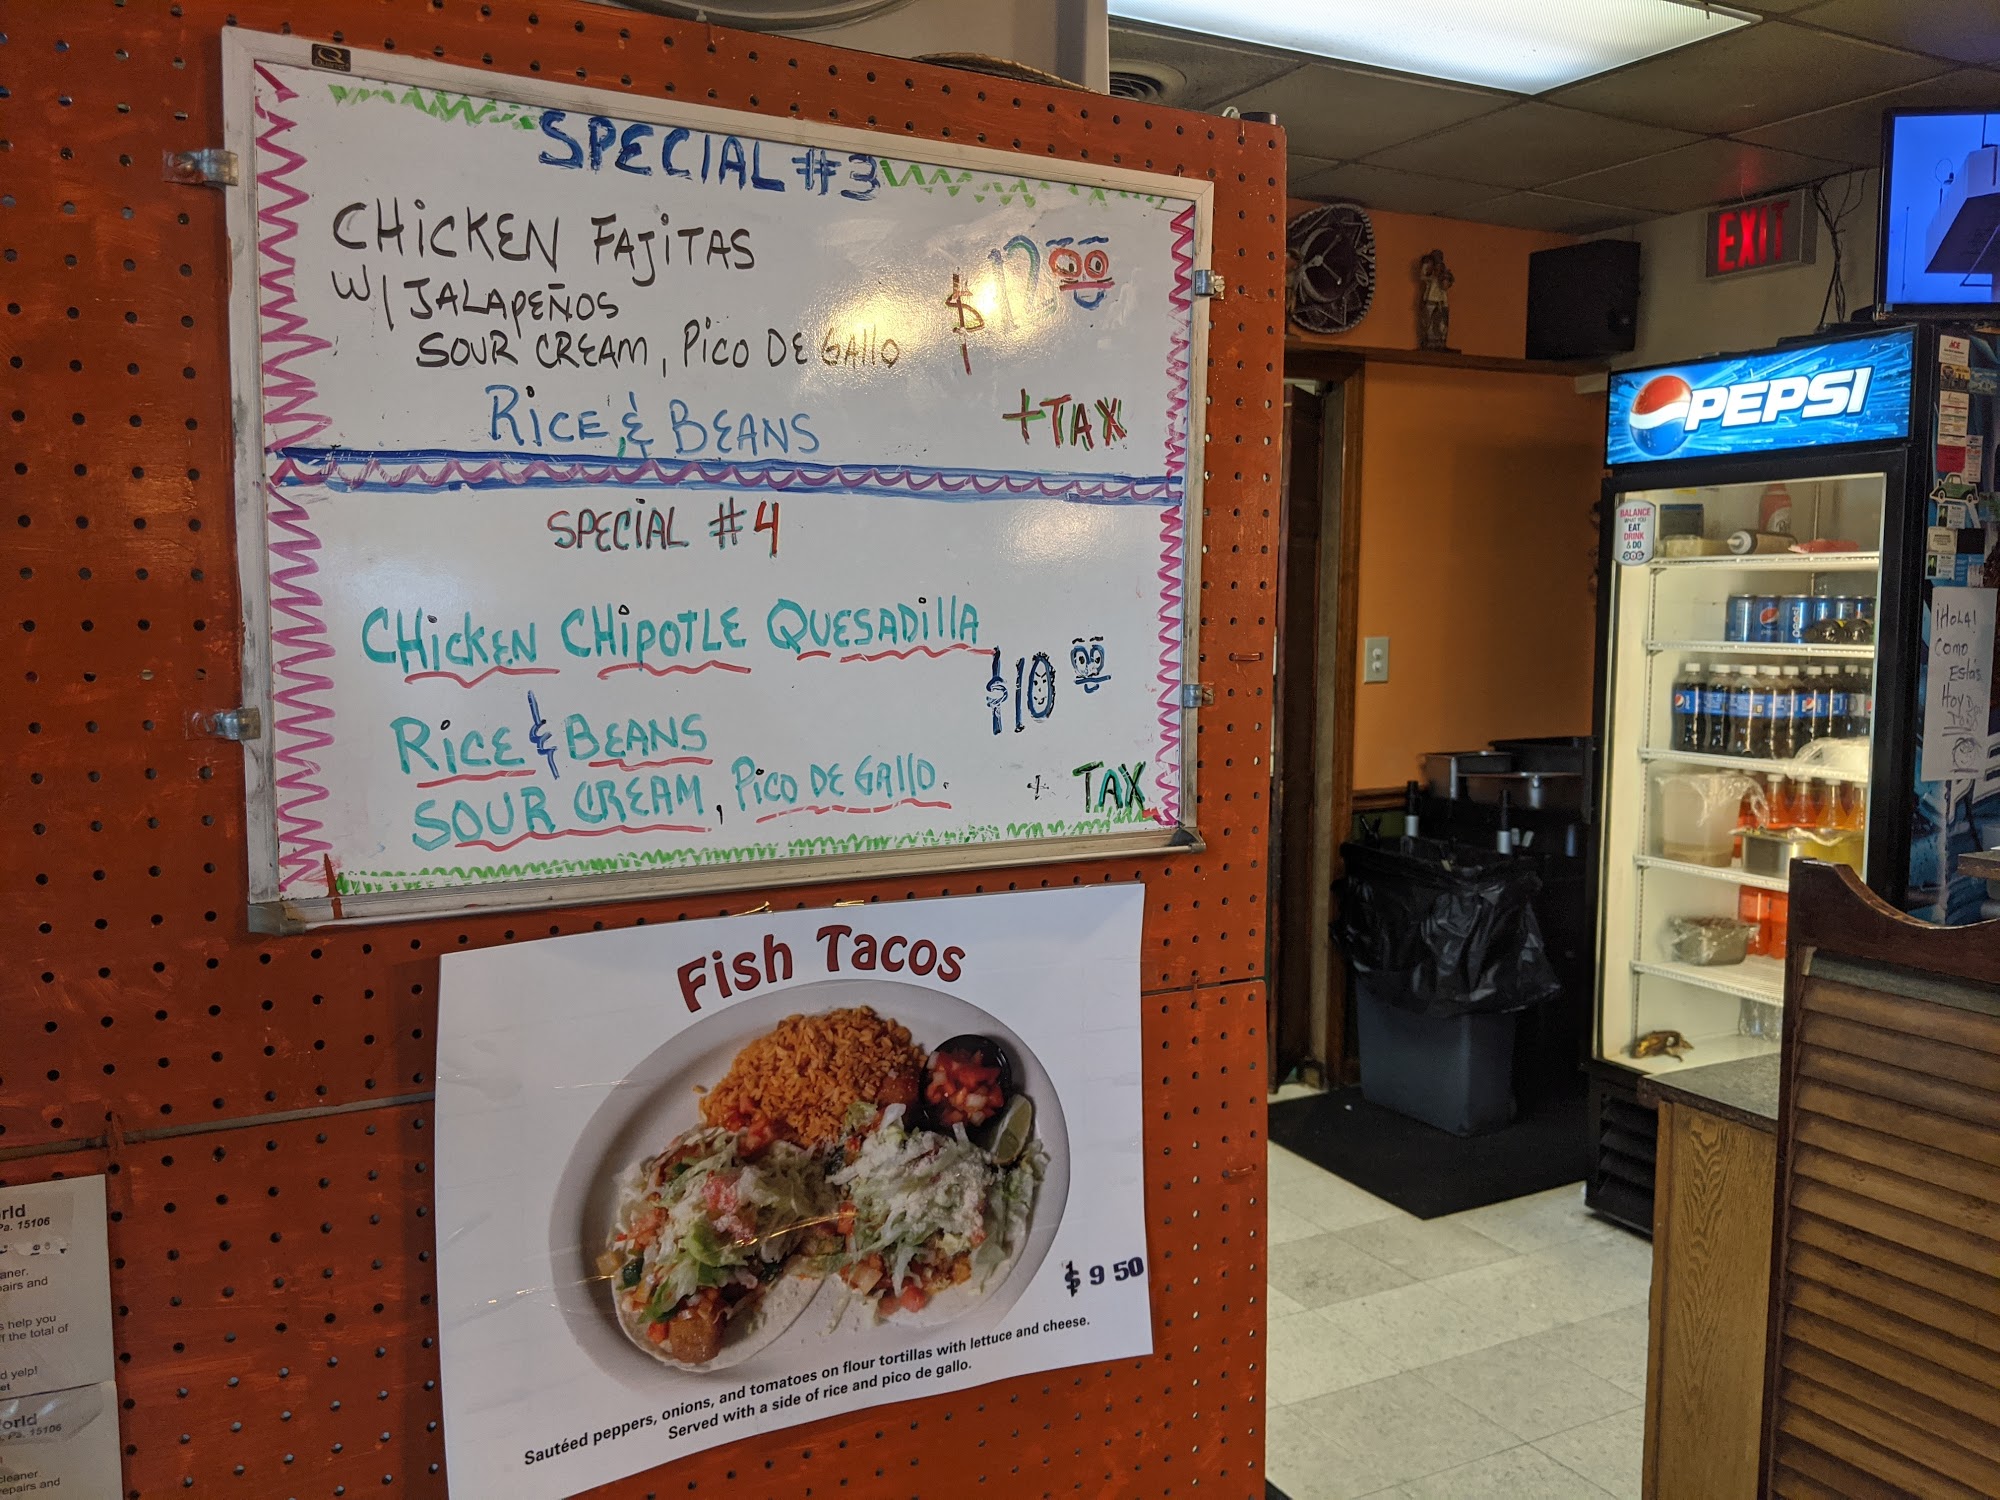 SPECIAL #3
CHICKEN FAJITAS
W/ JALAPEÑOS
SOUR CREAM, PICO DE GALLO
$12 00
RICE & BEANS
+TAX
SPECIAL #4
CHICKEN CHIPOTLE QUESADILLA
$10 00
RICE & BEANS
SOUR CREAM, PICO DE GALLO.
+ TAX
Fish Tacos
$ 9 50
Sautéed peppers, onions, and tomatoes on flour tortillas with lettuce and cheese.
Served with a side of rice and pico de gallo.
EXIT
PEPSI
BALANCE
WHAT YOU
EAT
DRINK
& DO
pepsi
ACE
¡HOLA!
COMO
ESTAS
HOY
rld
Pa. 15106
aner.
pairs and
s help you
ff the total of
d yelp!
et
orld
Pa. 15106
cleaner
repairs and